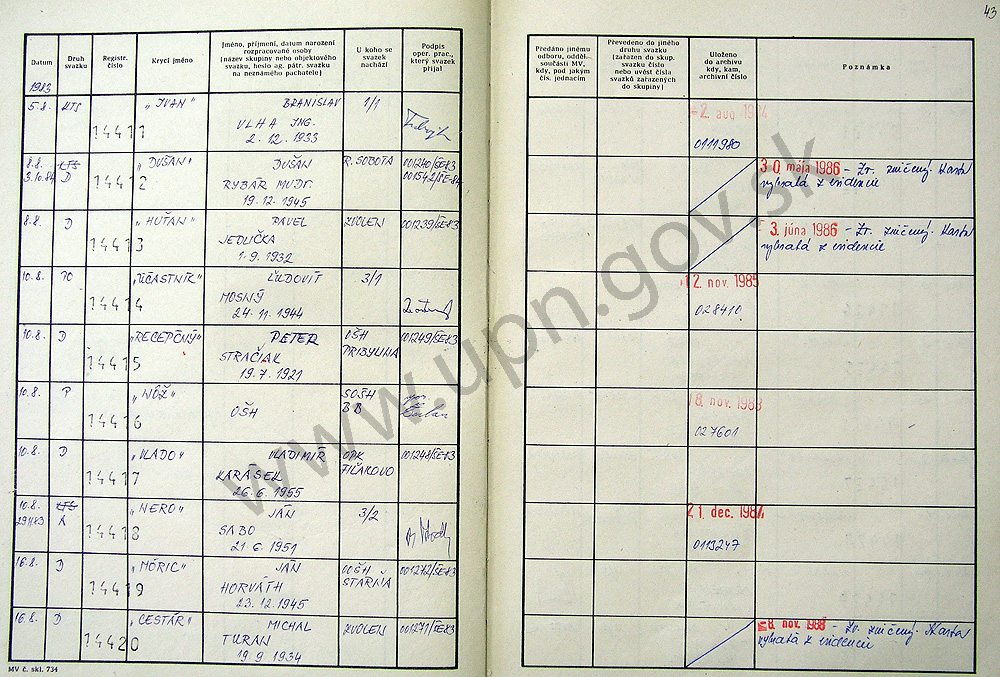 43
Datum
Druh svazku
Registr. číslo
Krycí jméno
Jméno, příjmení, datum narození rozpracované osoby (název skupiny nebo objektového svazku, heslo ag. pátr. svazku na neznámého pachatele)
U koho se svazek nachází
Podpis oper. prac., který svazek přijal
Předáno jinému odboru, odděl. součásti MV, kdy, pod jakým čís. jednacím
Převedeno do jiného druhu svazku (zařazen do skup. svazku číslo nebo uvést čísla svazků zařazených do skupiny)
Uloženo do archivu kdy, kam, archivní číslo
Poznámka
1983
5.8. KTS 14411 "IVAN" BRANISLAV 1/1
VLHA ING.
2. 12. 1933
2. aug 1984
0111980
8.8. KTS 14412 "DUŠAN" DUŠAN R. SOBOTA 001240/ŠE-83
3.10.84 D RYBÁR MUDr. 001542/ŠE-84
19. 12. 1945
30. mája 1986 - Zv. zničený. Karta
vybratá z evidencie
8.8. D 14413 "HUŤAN" PAVEL ZVOLEN 001239/ŠE-83
JEDLIČKA
1. 9. 1932
3. júna 1986 - Zv. zničený. Karta
vybratá z evidencie
10.8. PO 14414 "ÚČASTNÍK" ĽUDOVÍT 3/1
MOSNÝ
24. 11. 1944
12. nov. 1985
028410
10.8. D 14415 "RECEPČNÝ" PETER OŠH 001249/ŠE-83
STRAČIAK PRIBYLINA
19. 7. 1921
10.8. P 14416 "NÔŽ" SOŠH
OŠH BB
8. nov. 1983
027601
10.8. D 14417 "VLADO" VLADIMÍR OPK 001248/ŠE-83
KARÁSEK FIĽAKOVO
26. 6. 1955
10.8. KTS 14418 "NERO" JÁN 3/2
29.11.83 A SABO
21. 6. 1951
21. dec. 1984
0113247
16.8. D 14419 "MÓRIC" JÁN OŠH 001272/ŠE-83
HORVÁTH STARINA
23. 12. 1945
16.8. D 14420 "CESTÁR" MICHAL ZVOLEN 001271/ŠE-83
TURAN
19. 9. 1934
8. nov. 1988 - Zv. zničený. Karta
vybratá z evidencie
MV č. skl. 734
www.upn.gov.sk